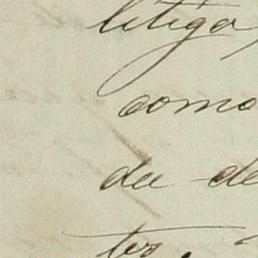 litiga,
como
da de
tos